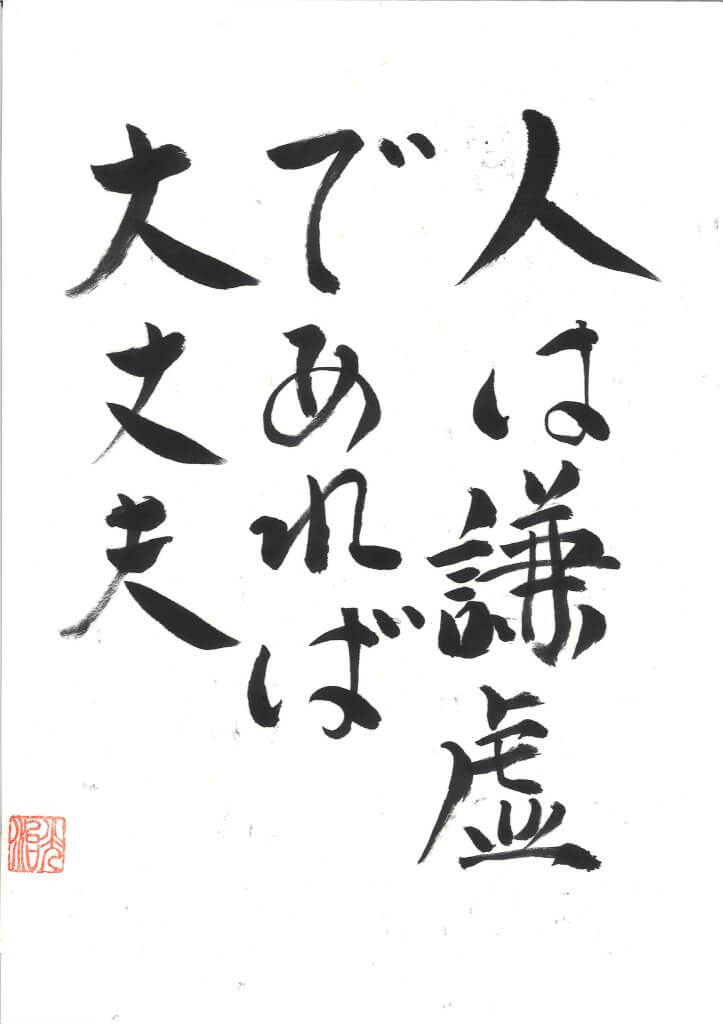 人は謙虚
であれば
大丈夫